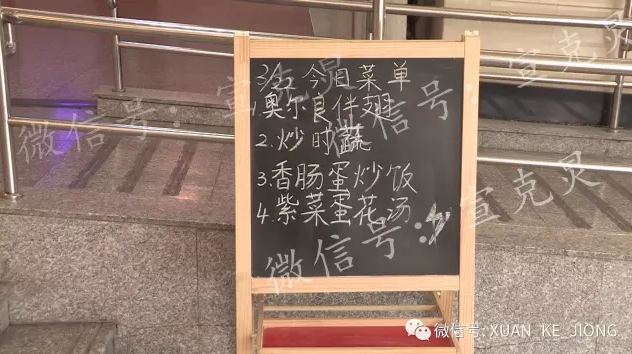 3/5 今日菜单
1.奥尔良伴翅
2.炒时蔬
3.香肠蛋炒饭
4.紫菜蛋花汤
微信号：宣克灵
微信号：宣克灵
微信号：宣克灵
微信号: XUAN_KE_JIONG